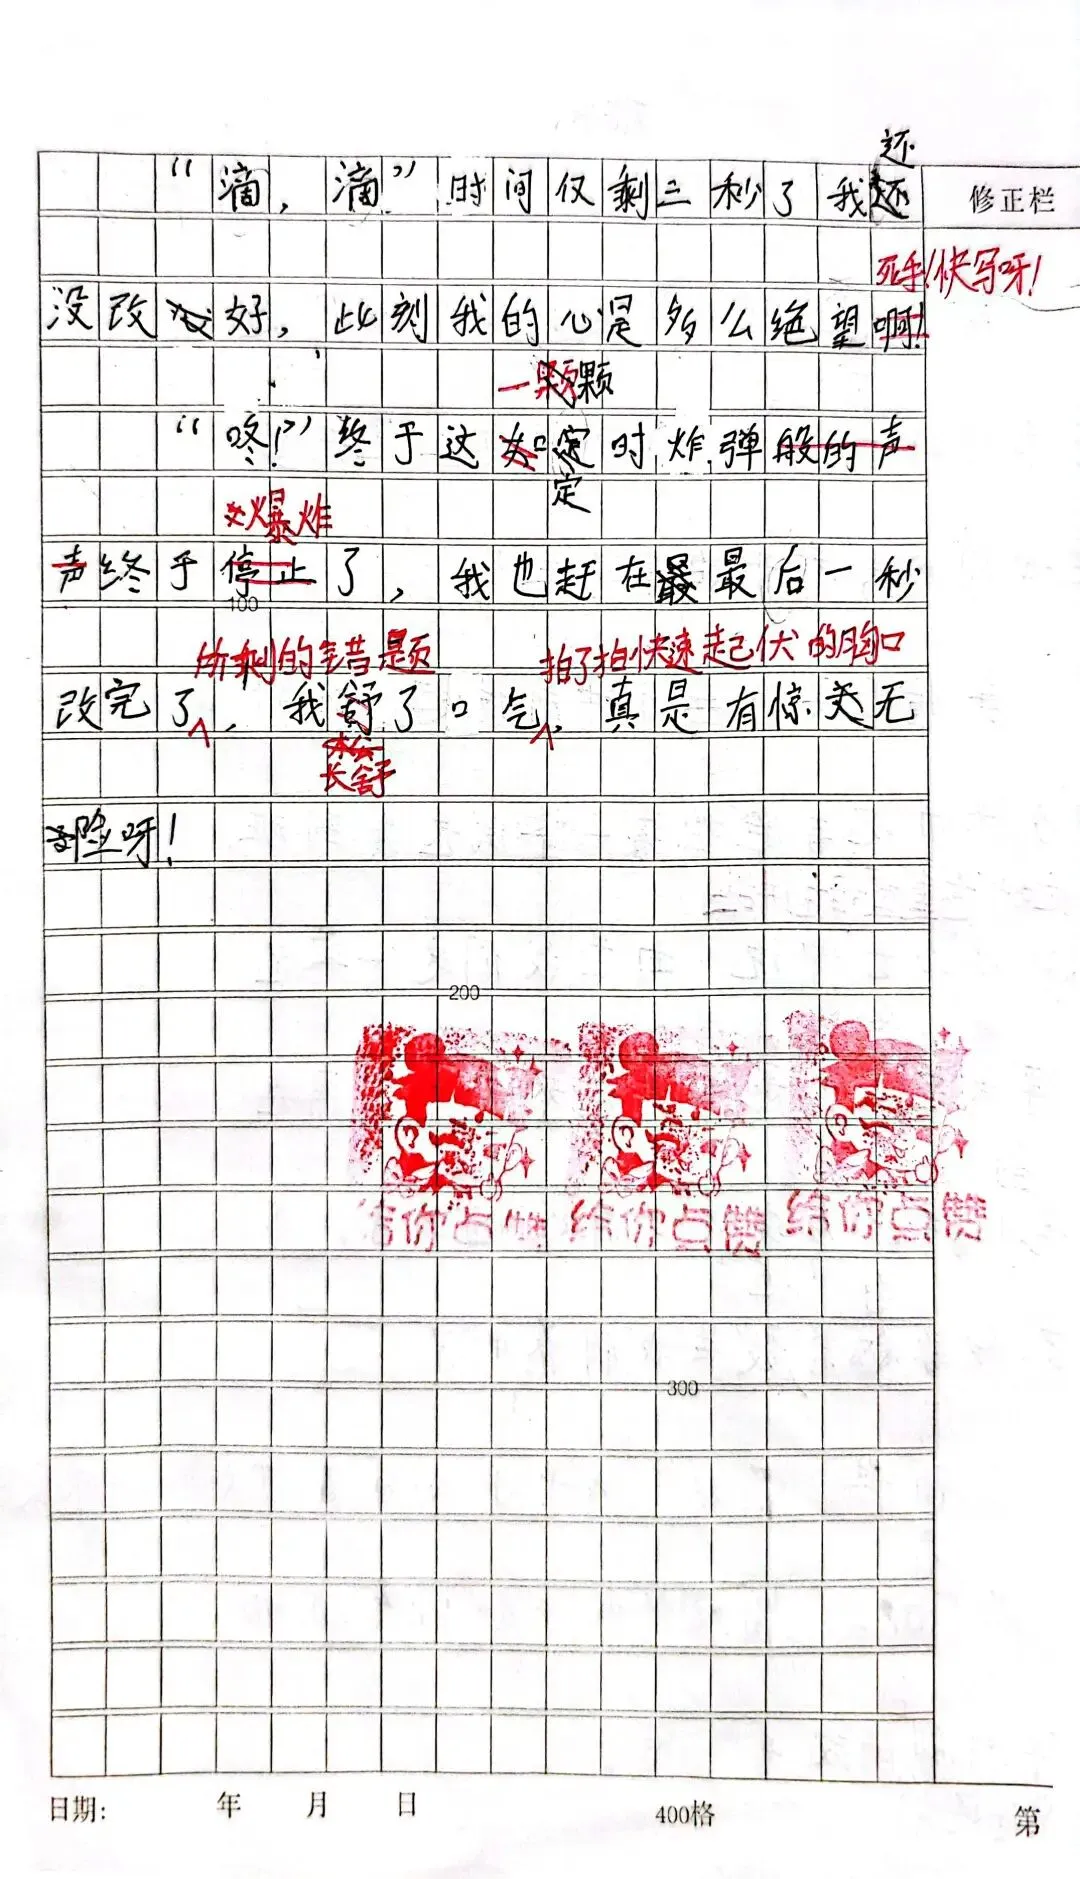 还
“滴,滴”时间仅剩三秒了我还
修正栏
死手!快写呀!
没改好,此刻我的心是多么绝望啊!
一颗颗
“咚!”终于这如定时炸弹般的声
定
爆炸
声终于停止了,我也赶在最最后一秒
100
所剩的错题 拍了拍快速起伏的胸口
改完了,我舒了口气,真是有惊无
长舒
险呀!
200
给你点赞 给你点赞 给你点赞
300
日期: 年 月 日 400格 第